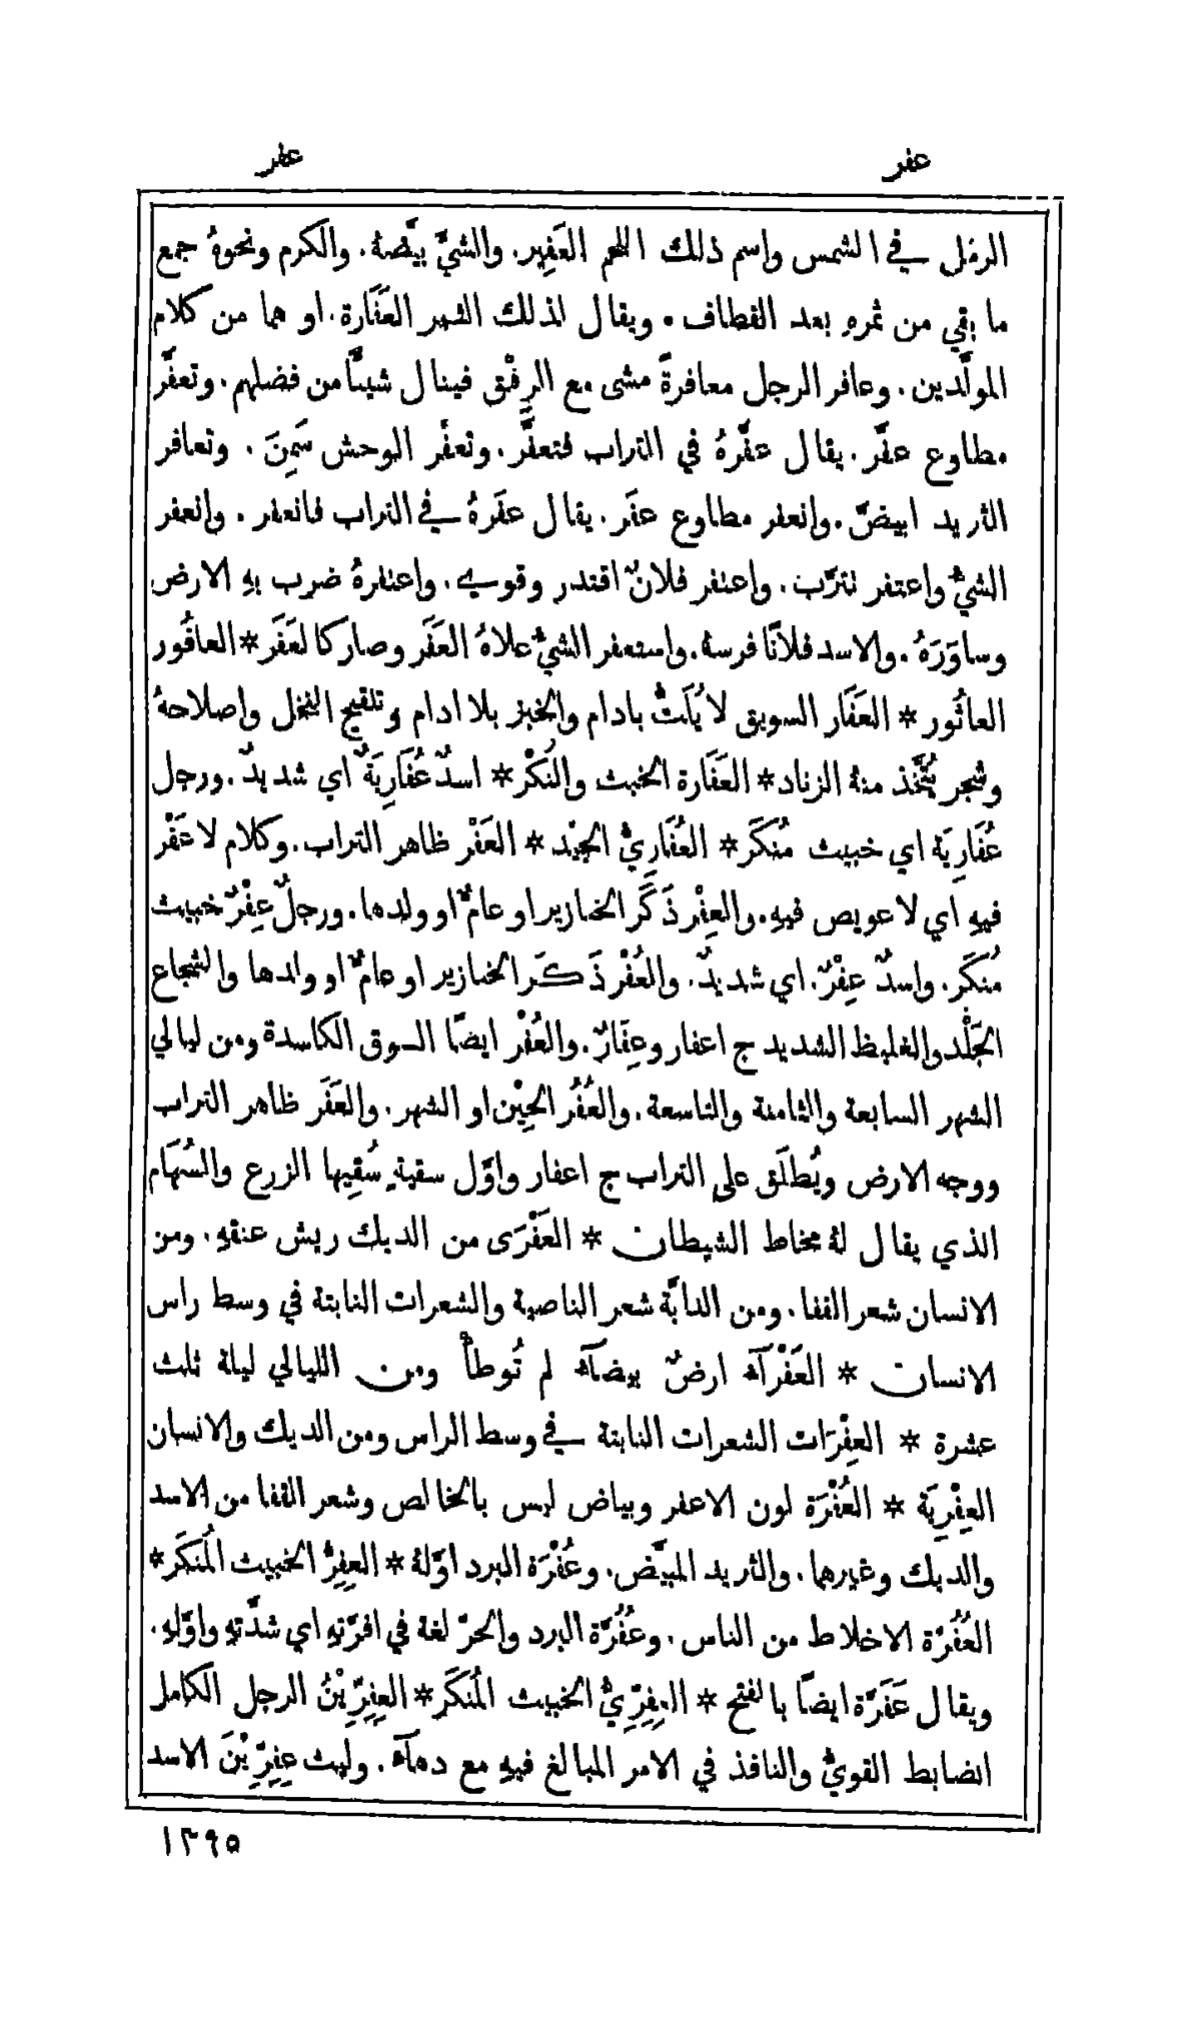 عفر
عفر
الرمل في الشمس واسم ذلك اللحم العَفِير. والشيَّ بيَّضهُ. والكرم ونحوهُ جمع
ما بقي من ثمرهِ بعد القطاف. ويقال لذلك الثمر العَفَّارة. او هما من كلام
المولَّدين. وعافر الرجل معافرةً مشى مع الرِفَق فينال شيئًا من فضلهم. وتعفَّر
مطاوع عفَّر. يقال عفَّرهُ في التراب فتعفَّر. وتعفَّر الوحش سَمِنَ. وتعافر
الثريد ابيضّ. وانعفر مطاوع عفَر. يقال عفَرهُ في التراب فانعفر. وانعفر
الشيءُ واعتفر تترَّب. واعتفر فلانٌ اقتدر وقوي. واعتفرهُ ضرب بهِ الارض
وساوَرَهُ. والاسد فلانًا فرسهُ. واستعفر الشيءُ علاهُ العَفَر وصار كالعَفَر * العافُور
العاثُور * العَفَار السويق لا يُلَتُّ بادام والخبز بلا ادام وتلقيح النخل واصلاحهُ
وشجر يُتَّخَذ منهُ الزناد * العَفَارة الخبث والنُكْر * اسدٌ عُفَارِيَةٌ اي شديدٌ. ورجل
عُفَارِيَة اي خبيث مُنكَر * العُفَارِيُّ الجيّد * العَفْر ظاهر التراب. وكلام لا عَفْر
فيهِ اي لا عويص فيهِ. والعِفْر ذَكَر الخنازير او عامٌّ او ولدها. ورجلٌ عِفْرٌ خبيث
مُنكَر. واسدٌ عِفْرٌ. اي شديدٌ. والعُفْر ذَكَر الخنازير او عامٌّ او ولدها والشجاع
الجَلْد والغليظ الشديد ج اعفار وعِفَارٌ. والعُفْر ايضًا السوق الكاسدة ومن ليالي
الشهر السابعة والثامنة والتاسعة. والعُفُر الحِيْن او الشهر. والعَفَر ظاهر التراب
ووجه الارض ويُطلَق على التراب ج اعفار واوَّل سقيةٍ سُقِيها الزرع والسُهَام
الذي يقال لهُ مخاط الشيطان * العَفْرَى من الديك ريش عنقهِ. ومن
الانسان شعر القفا. ومن الدابَّة شعر الناصية والشعرات النابتة في وسط راس
الانسان * العَفْرَآءُ ارضٌ بيضآءُ لم تُوطأْ ومن الليالي ليلة ثلث
عشرة * العِفْرَات الشعرات النابتة في وسط الراس ومن الديك والانسان
العِفْرِيَة * العُفْرَة لون الاعفر وبياض ليس بالخالص وشعر القفا من الاسد
والديك وغيرهما. والثريد المبيَّض. وعُفْرَة البرد اوَّلهُ * العِفِرُّ الخبيث المُنكَر *
العُفُرَّة الاخلاط من الناس. وعُفُرَّة البرد والحرّ لغة في افرّتهِ اي شدَّتهِ واوَّلهِ.
ويقال عَفَرَّة ايضًا بالفتح * العِفِرِّيُّ الخبيث المُنكَر * العِفِرِّيْنُ الرجل الكامل
الضابط القويُّ والنافذ في الامر المبالغ فيهِ مع دهآءٍ. وليث عِفِرِّيْنَ الاسد
١٣٩٥